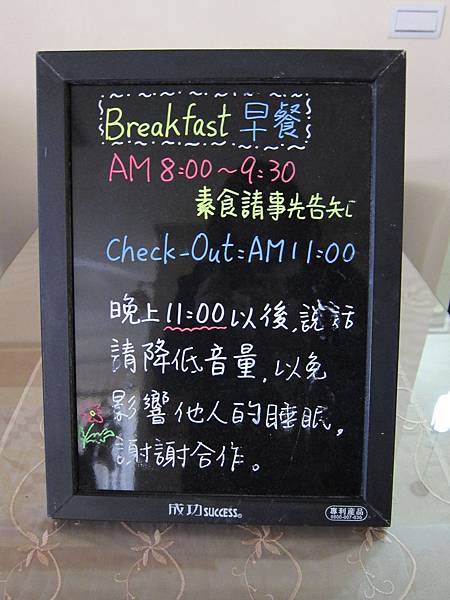 Breakfast 早餐
AM 8:00～9:30
素食請事先告知
Check-Out:AM11:00
晚上11:00以後,說話
請降低音量,以免
影響他人的睡眠,
謝謝合作。
成功 SUCCESS®
專利產品
0800-007-030